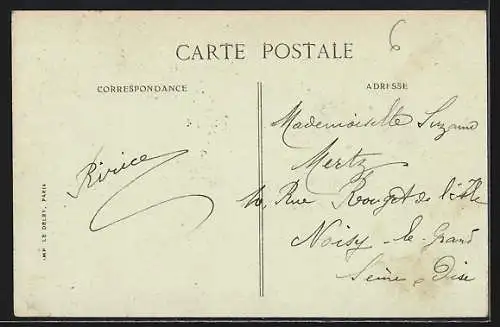 6
CARTE POSTALE
CORRESPONDANCE
ADRESSE
Mademoiselle Suzanne
Mertz
10, Rue Rouget de l'isle
Noisy-le-Grand
Seine & Oise
IMP. LE DELEY, PARIS